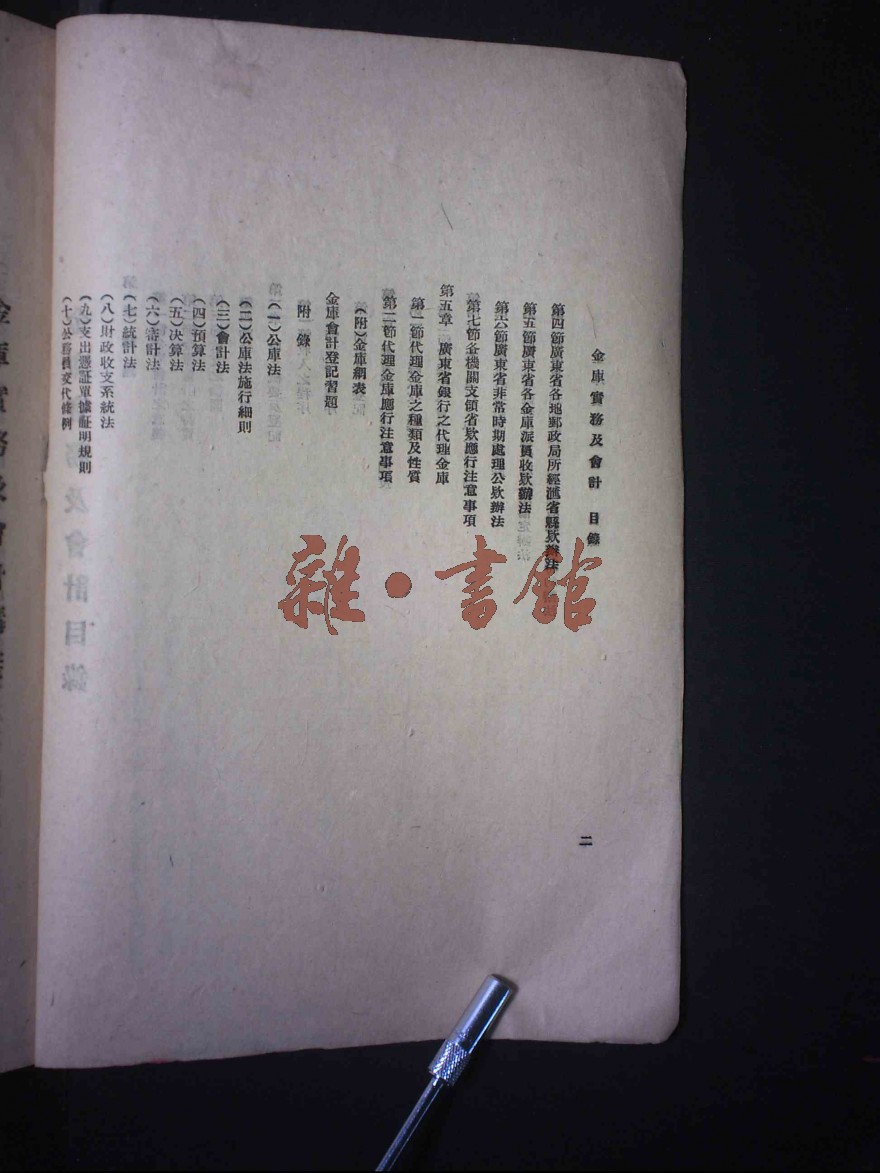 金庫實務及會計 目錄
第四節廣東省各地郵政局所經滙省縣欵辦法
第五節廣東省各金庫派員收欵辦法
第六節廣東省非常時期處理公欵辦法
第七節各機關支領省欵應行注意事項
第五章 廣東省銀行之代理金庫
第一節代理金庫之種類及性質
第二節代理金庫應行注意事項
(附)金庫網表
金庫會計登記習題
附 錄
(一)公庫法
(二)公庫法施行細則
(三)會計法
(四)預算法
(五)决算法
(六)審計法
(七)統計法
(八)財政收支系統法
(九)支出憑証單據証明規則
(十)公務員交代條例
二
雜·書館